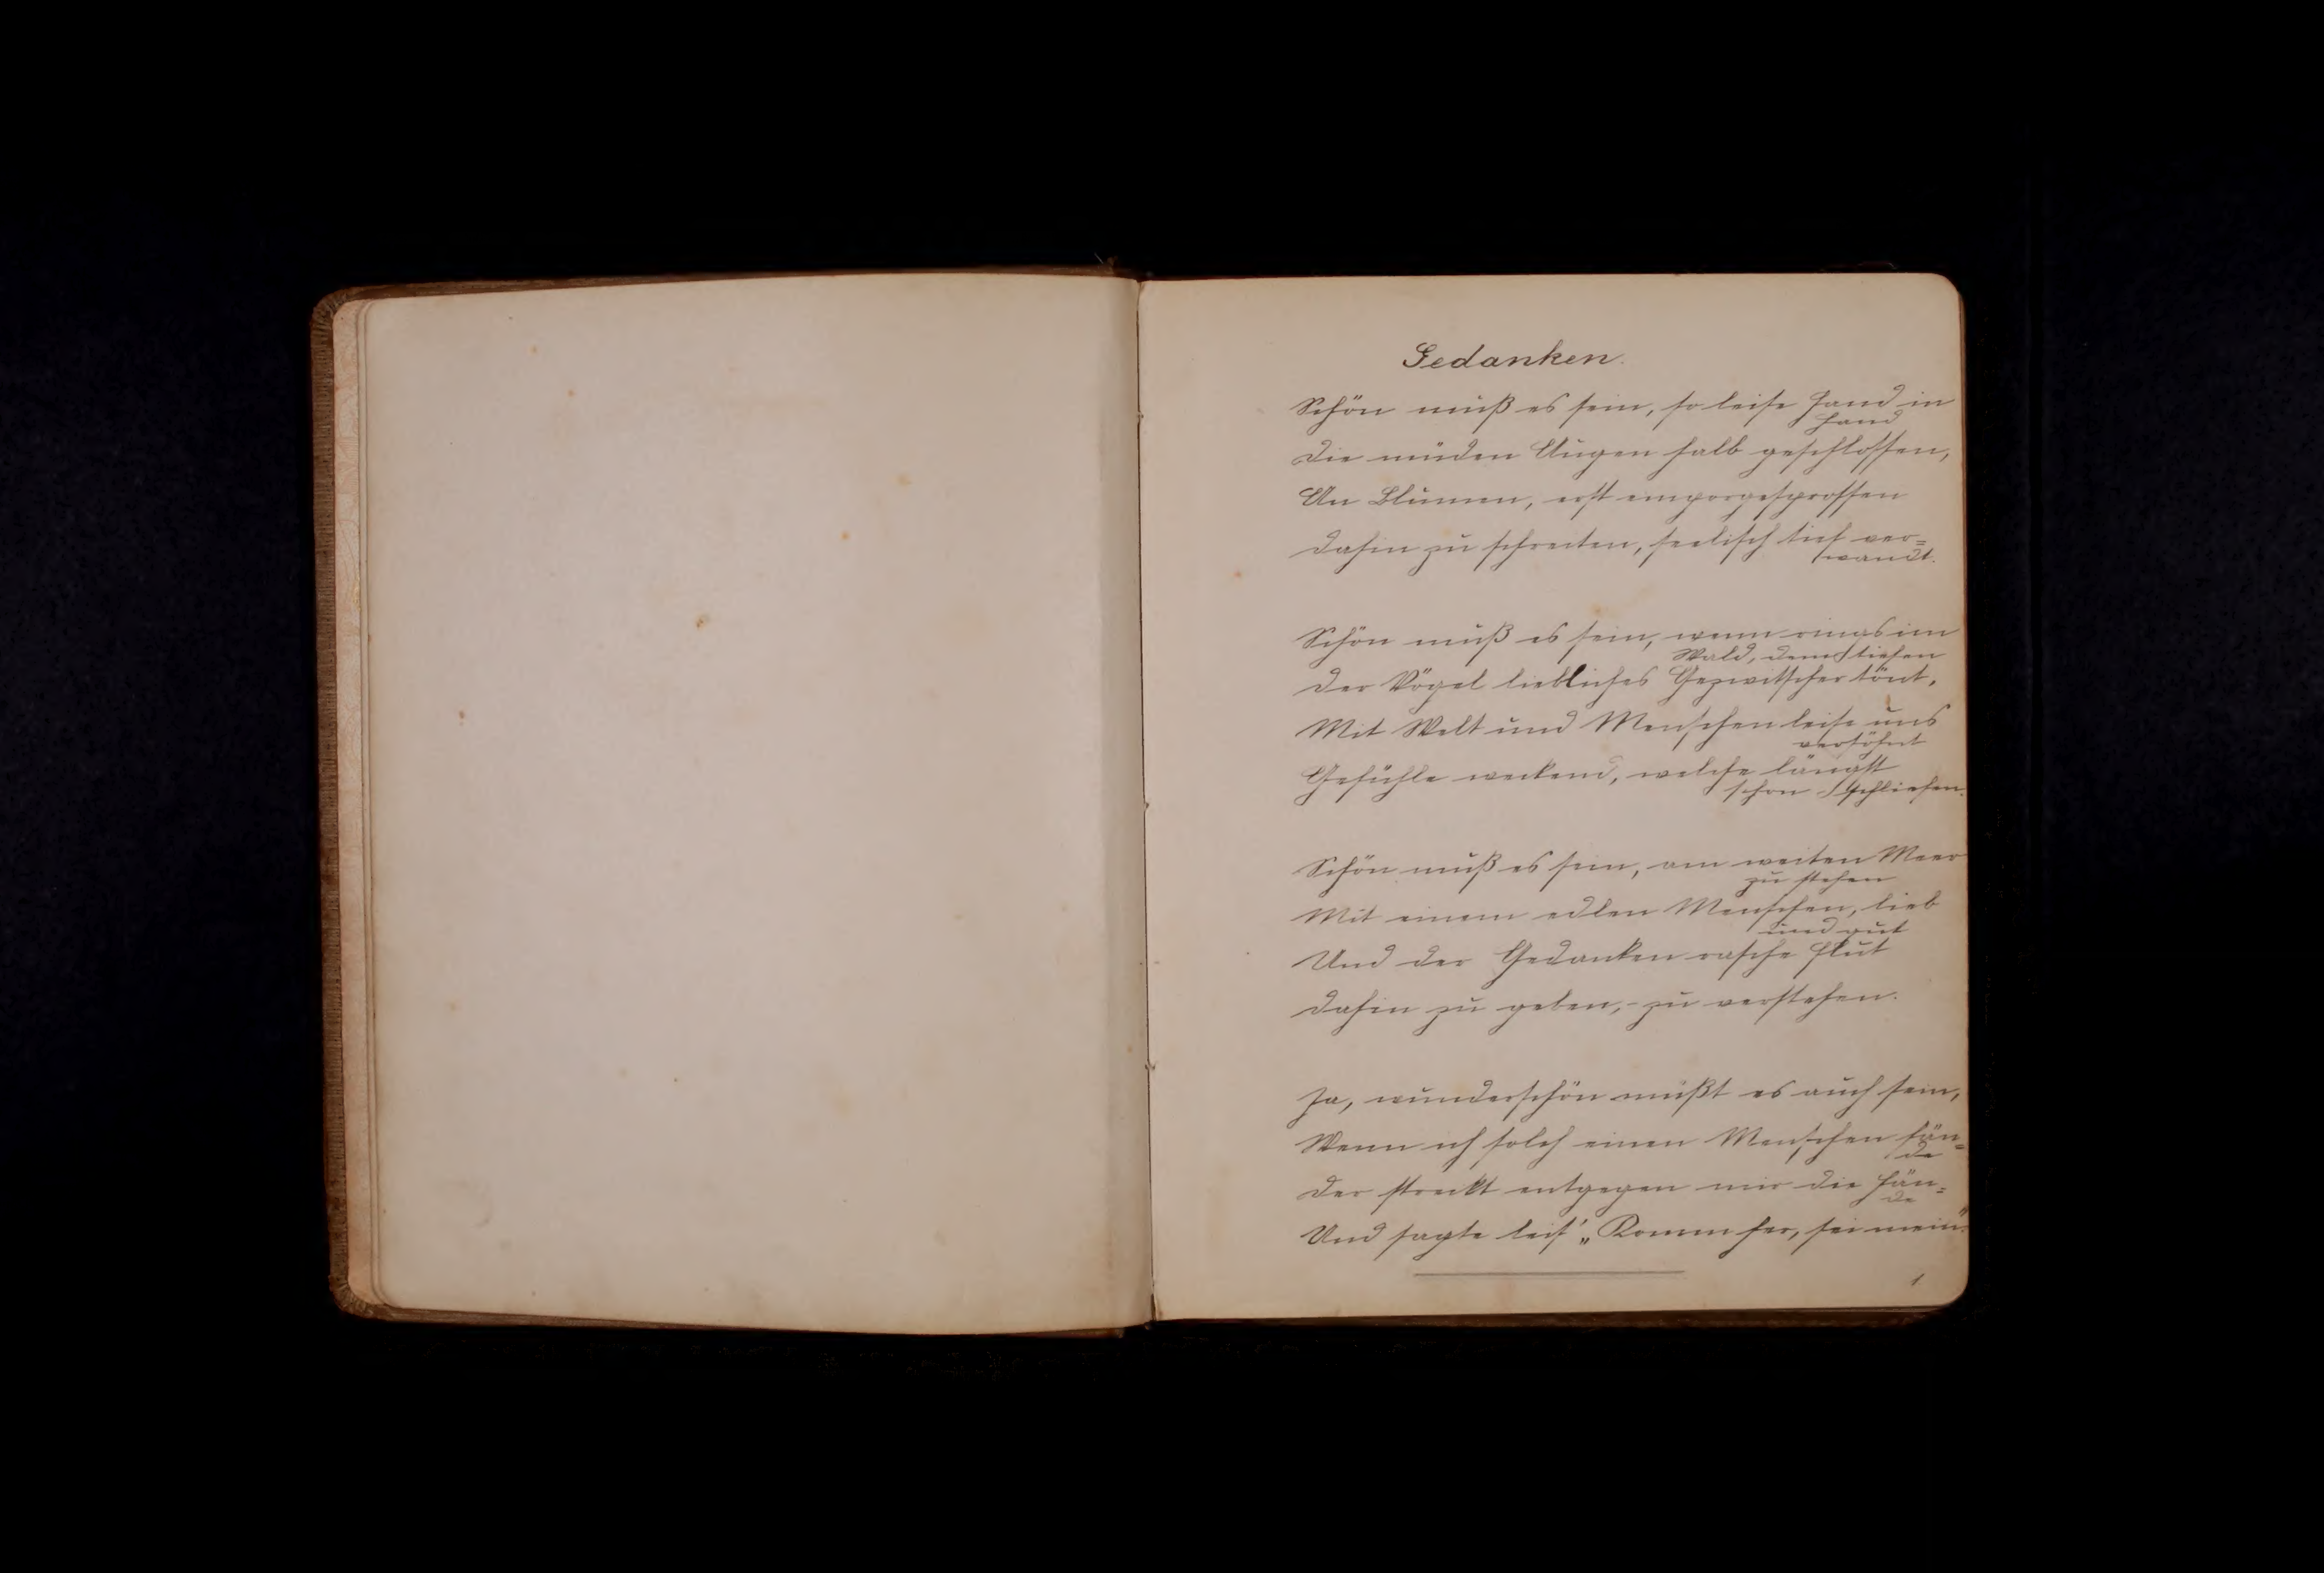 Gedanken.
Schön muß es sein, so leise Hand in
Hand
Die müden Augen halb geschlossen,
An Blumen, erst emporgesprossen
Dahin zu schreiten, seelisch tief ver=
wandt.
Schön muß es sein, wenn rings im
Wald, dem tiefen
Der Vögel liebliches Gezwitscher tönt,
Mit Welt und Menschen leise uns
versöhnt
Gefühle weckend, welche längst
schon schliefen.
Schön muß es sein, am weiten Meer
zu stehen
Mit einem edlen Menschen, lieb
und gut
Und der Gedanken rasche Flut
Dahin zu geben, - zu verstehen.
Ja, wunderschön müßt es auch sein,
Wenn ich solch einen Menschen fän=
de
Der streckt entgegen mir die Hän=
de
Und sagte leis' „Komm her, sei mein".
1